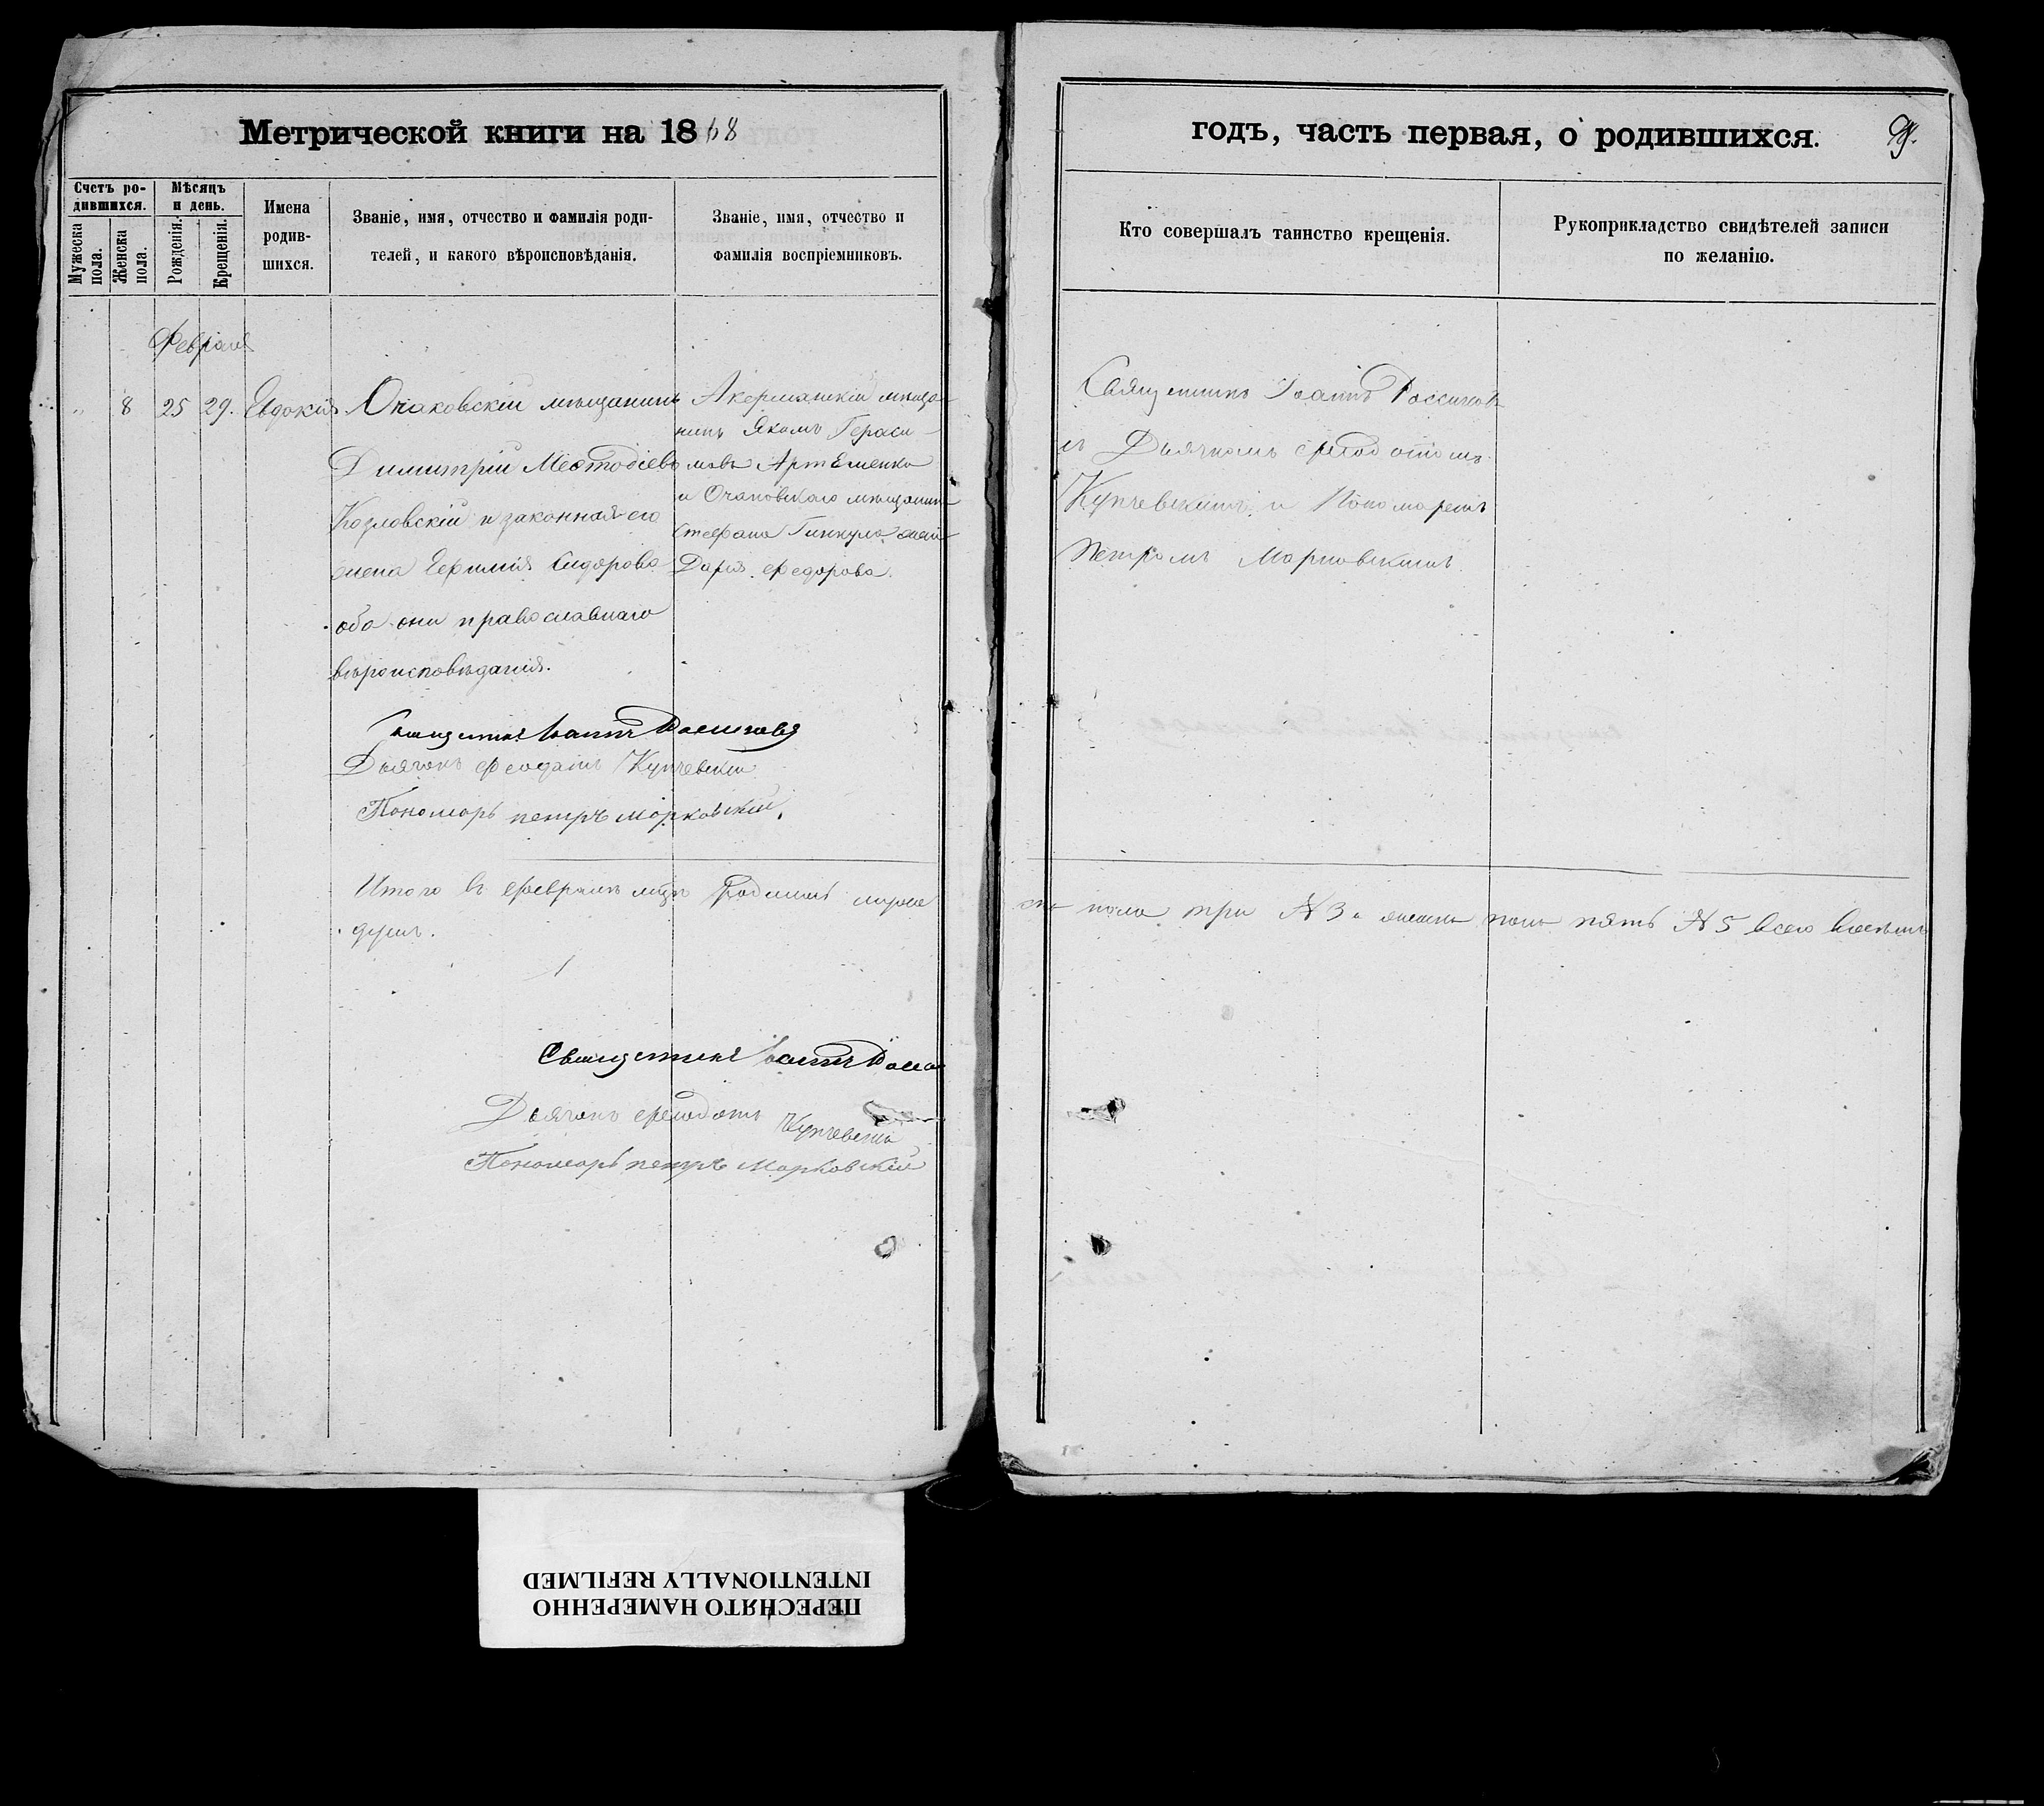 Метрической книги на 1868
Счетъ ро-
дившихся.
Мужеска пола.
Женска пола.
Мѣсяцъ
и день.
Рожденія.
Крещенія.
Имена
родив-
шихся.
Званіе, имя, отчество и фамилія роди-
телей, и какого вѣроисповѣданія.
Званіе, имя, отчество и
фамилія воспріемниковъ.
Февраля
„ 8 25 29. Евдокія
Очаковскій мѣщанинъ
Димитрій Меѳодіевъ
Козловскій и законная его
жена Евфимія Сидорова
оба они православнаго
вѣроисповѣданія.
Акерманскій мѣща-
нинъ Якомъ Гераси-
мовъ Артеменко
и Очаковскаго мѣщанина
Стефана Гинкула жена
Дарія Федорова.
Священникъ Іоаннъ
Дьячокъ Феодотъ Купчевскій
Пономарь петръ Марковскій.
Итого въ Февралѣ родилось мужес
душъ.
Священникъ Іоаннъ
Дьячокъ Феодотъ Купчевскій
Пономарь петръ Марковскій
годъ, часть первая, о родившихся.
Кто совершалъ таинство крещенія.
Рукоприкладство свидѣтелей записи
по желанію.
Священникъ Іоаннъ
съ Дьячкомъ Феодотомъ
Купчевскимъ и Пономаремъ
Петромъ Марковскимъ.
пола три № 3 а женска пола пять № 5 всего восемь
ПЕРЕСНЯТО НАМЕРЕННО
INTENTIONALLY REFILMED